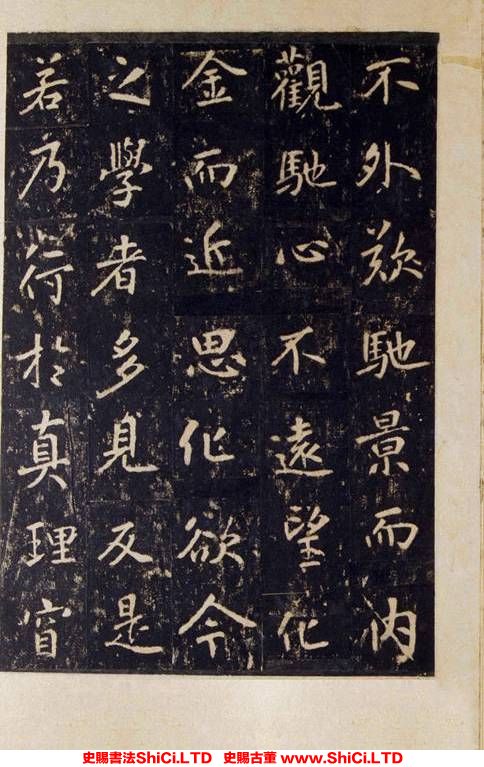 不外欻馳景而内
觀馳心不遠望化
金而近思化欲今
之學者多見反是
若乃行於真理窅
史賜書法ShiCi.LTD 史賜古董 www.ShiCi.LTD